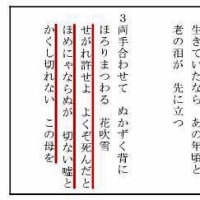 生きていたなら あの年頃と
老の泪が 先に立つ
3 両手合わせて ぬかずく背に
ほろりまつわる 花吹雪
せがれ許せよ よくぞ死んだと
ほめにゃならぬが 切ない嘘と
かくし切れない この母を